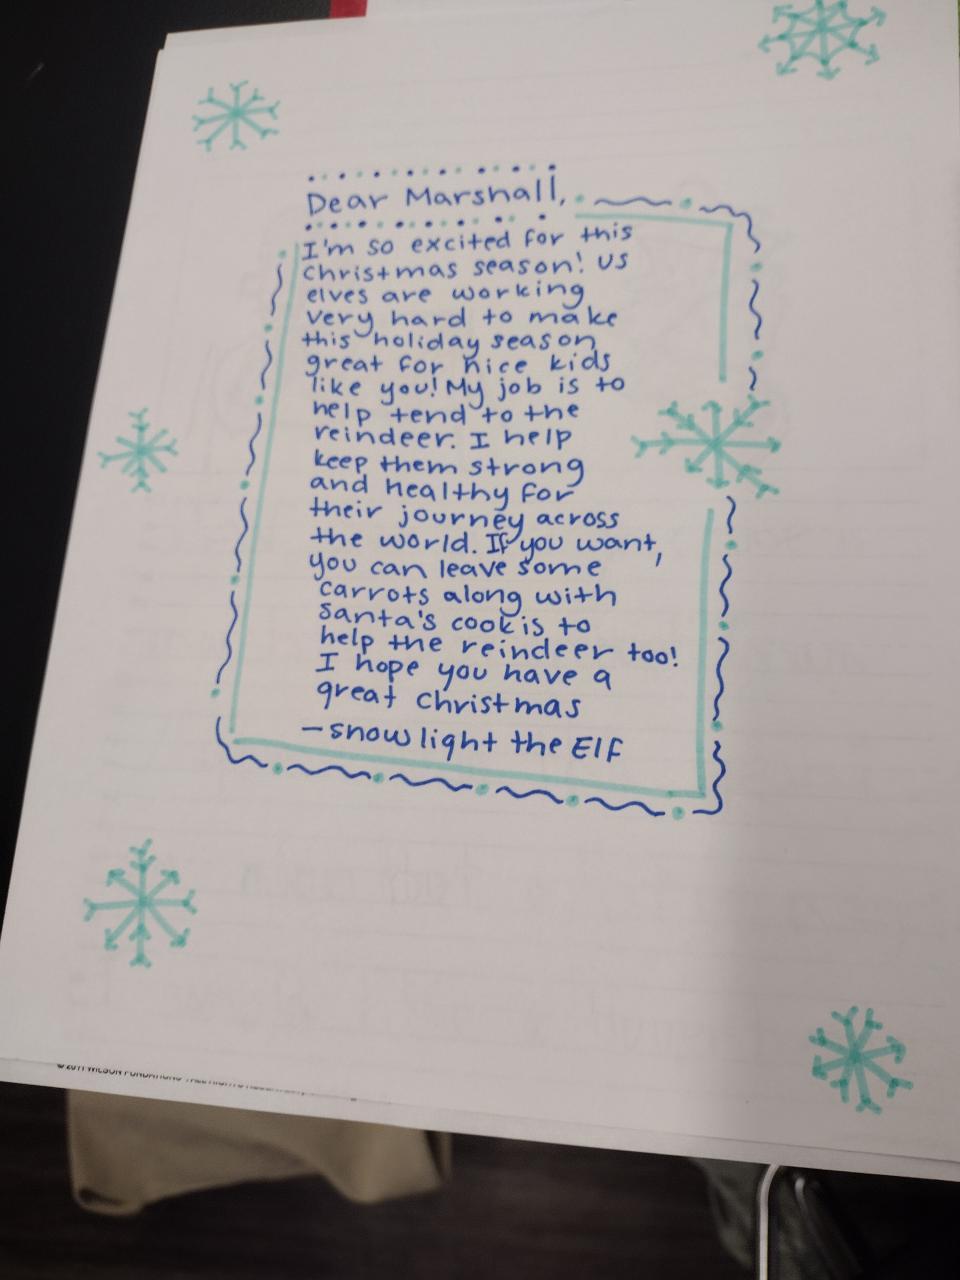 Dear Marshall,
I'm so excited for this
Christmas season! Us
elves are working
very hard to make
this holiday season
great for nice kids
like you! My job is to
help tend to the
reindeer. I help
keep them strong
and healthy for
their journey across
the world. If you want,
you can leave some
carrots along with
Santa's cookis to
help the reindeer too!
I hope you have a
great Christmas
- Snowlight the Elf
© 2011 WILSON